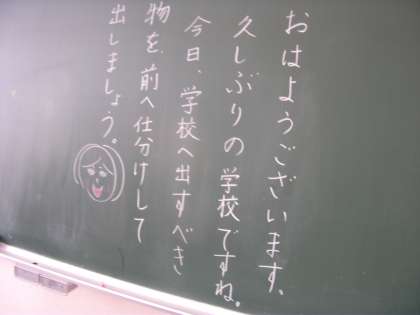 おはようございます、
久しぶりの学校ですね。
今日、学校へ出すべき
物を、前へ仕分けして
出しましょう。